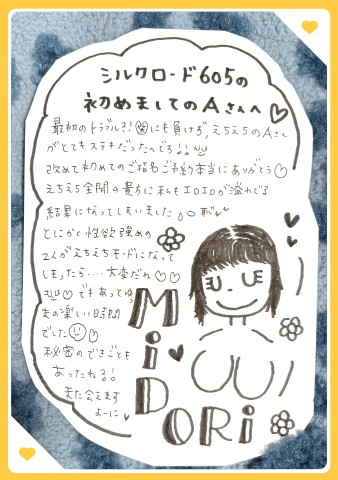 シルクロード605の
初めましてのAさんへ♡
最初のトラブル?!にも負けず、えちえちのAさん
がとてもステキだったんでする!!
改めて初めてのご指名ご予約本当にありがとう♡
えちえち全開の貴方に私もエロエロが溢れでる
結果になってしまいました
とにかく性欲強めの
2人がえちえちモードになって
しまったら....大変だね♡♡
でもあっとゆう
まの楽しい時間
でした♡
秘密のできごとも
あったわね!!
また会えます
よーに
MiDORi